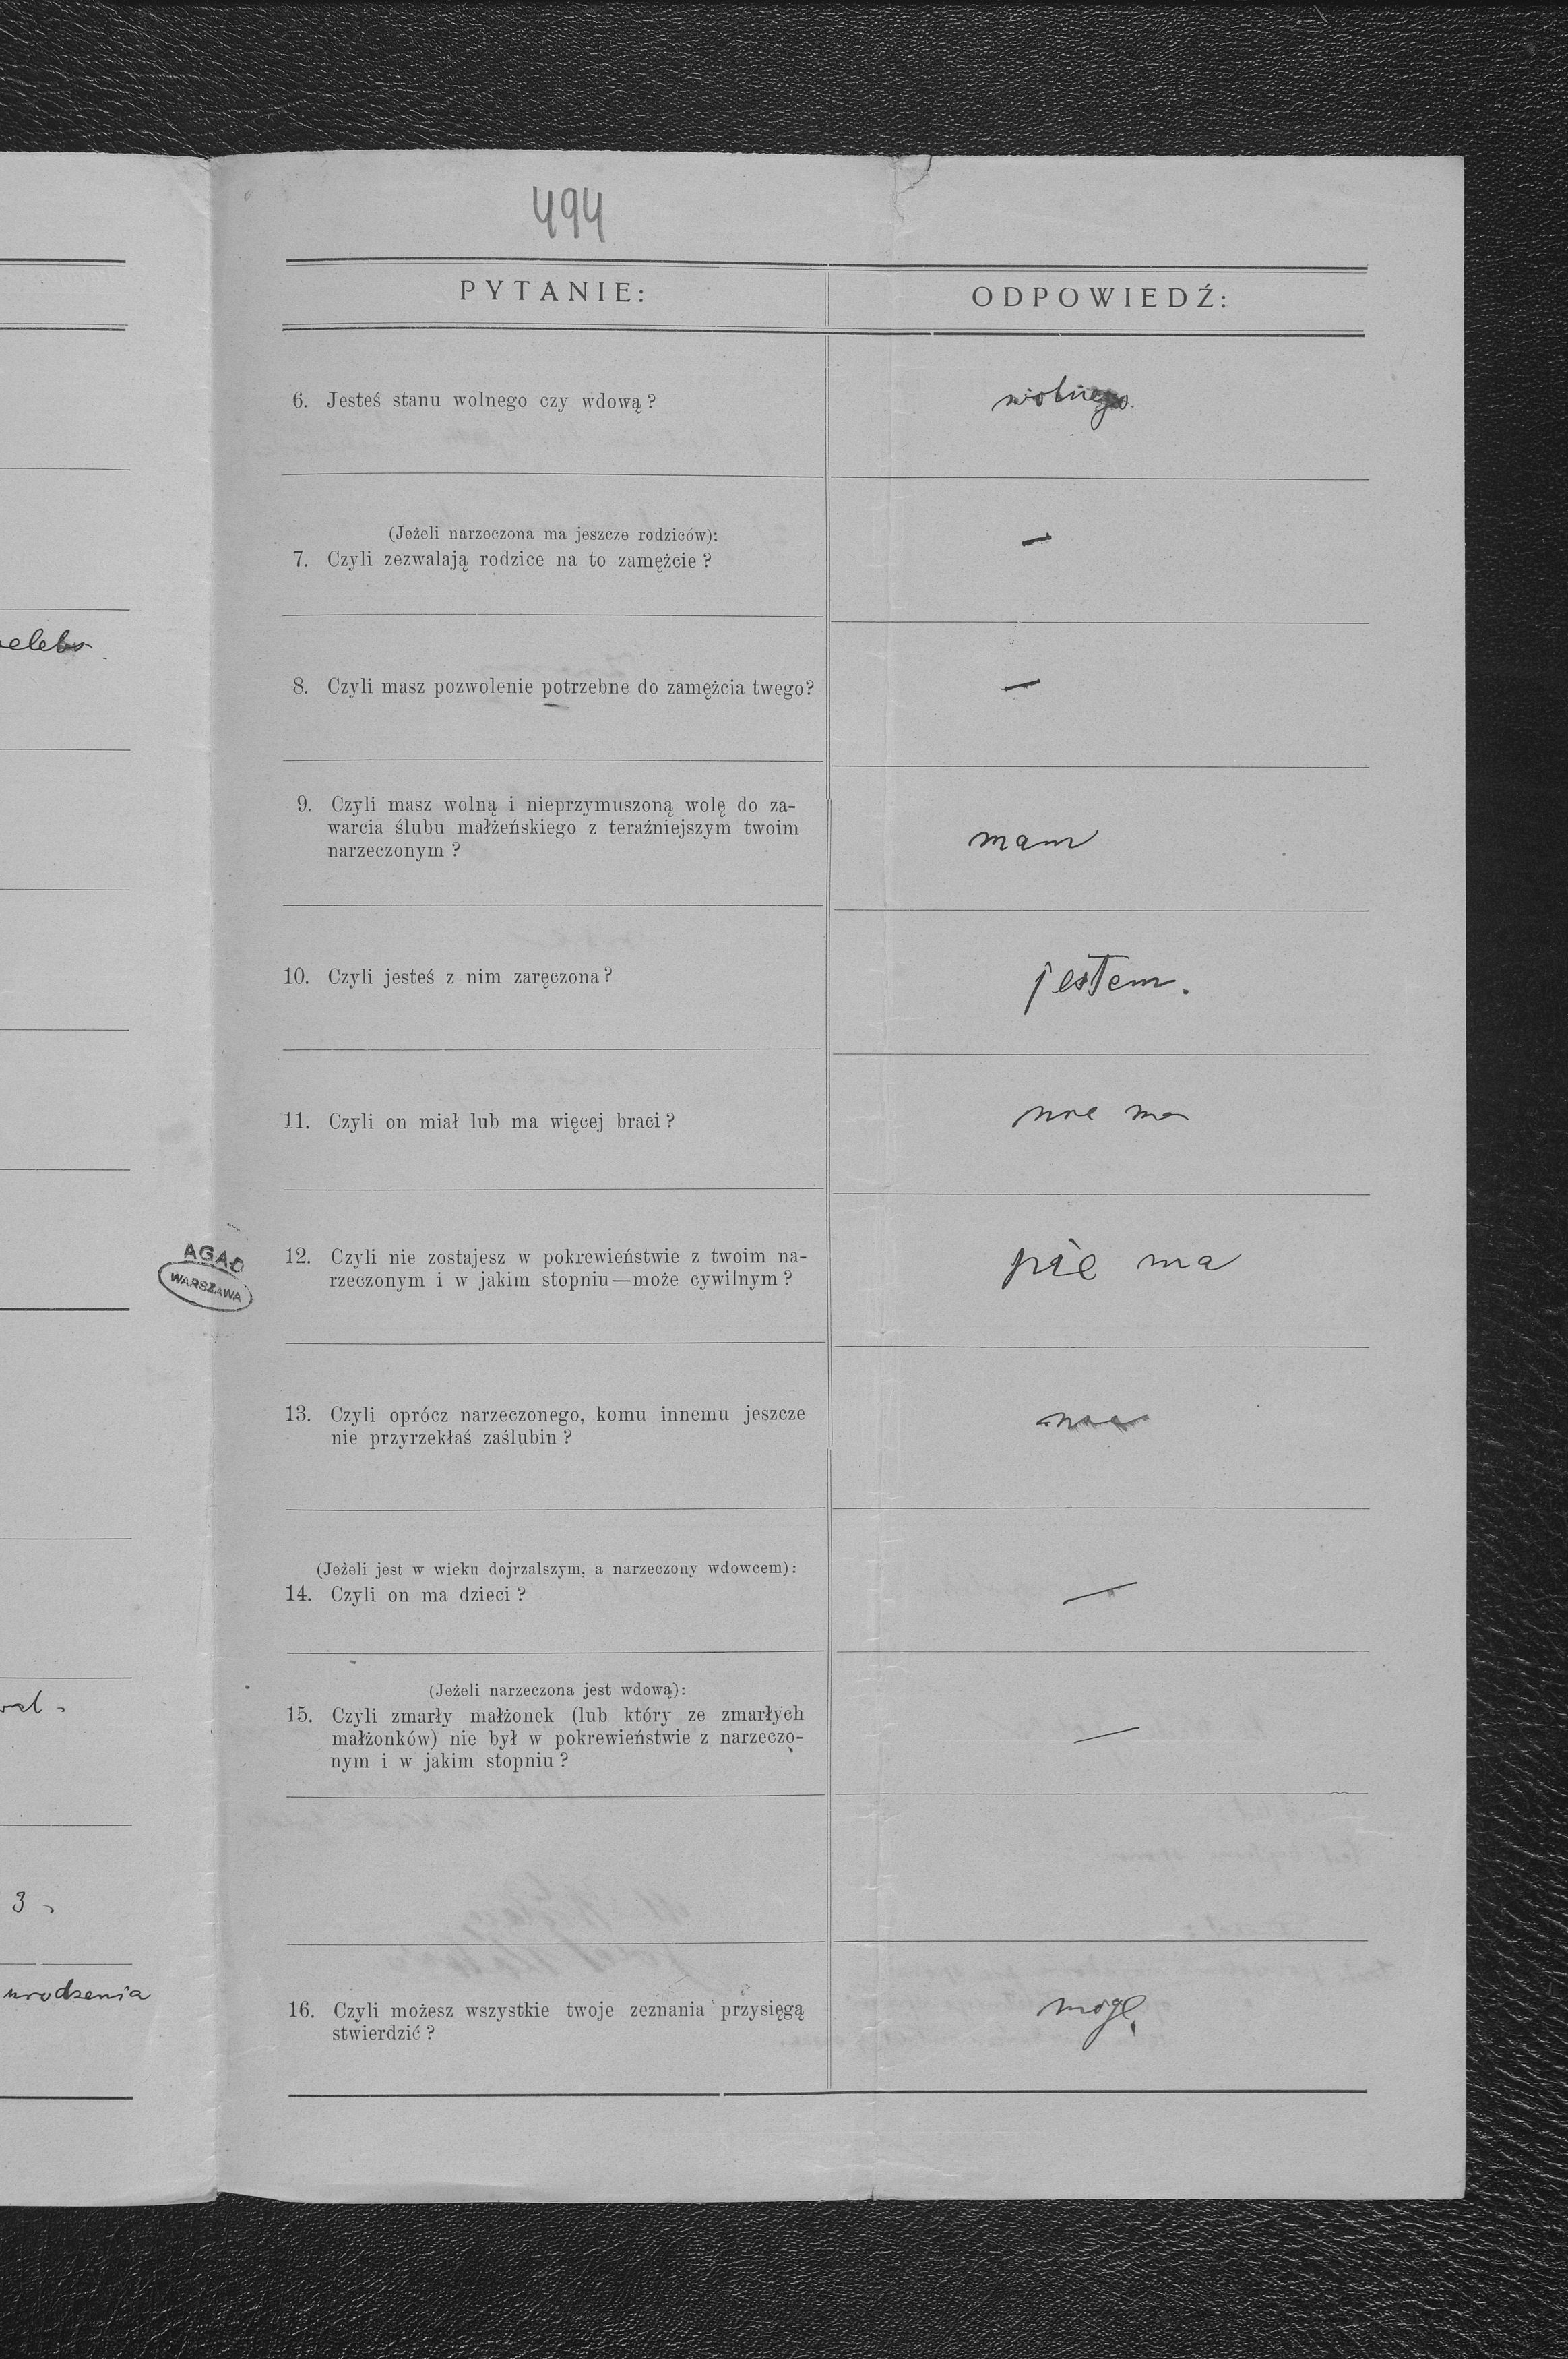 494
PYTANIE:
ODPOWIEDŹ:
6. Jesteś stanu wolnego czy wdową?
wolnego.
(Jeżeli narzeczona ma jeszcze rodziców):
7. Czyli zezwalają rodzice na to zamężcie?
—
8. Czyli masz pozwolenie potrzebne do zamężcia twego?
—
9. Czyli masz wolną i nieprzymuszoną wolę do za-
warcia ślubu małżeńskiego z teraźniejszym twoim
narzeczonym?
mam
10. Czyli jesteś z nim zaręczona?
jestem.
11. Czyli on miał lub ma więcej braci?
nie ma
12. Czyli nie zostajesz w pokrewieństwie z twoim na-
rzeczonym i w jakim stopniu—może cywilnym?
nie ma
13. Czyli oprócz narzeczonego, komu innemu jeszcze
nie przyrzekłaś zaślubin?
nie
(Jeżeli jest w wieku dojrzalszym, a narzeczony wdowcem):
14. Czyli on ma dzieci?
—
(Jeżeli narzeczona jest wdową):
15. Czyli zmarły małżonek (lub który ze zmarłych
małżonków) nie był w pokrewieństwie z narzeczo-
nym i w jakim stopniu?
—
16. Czyli możesz wszystkie twoje zeznania przysięgą
stwierdzić?
mogę
AGAD
WARSZAWA
3
urodzenia